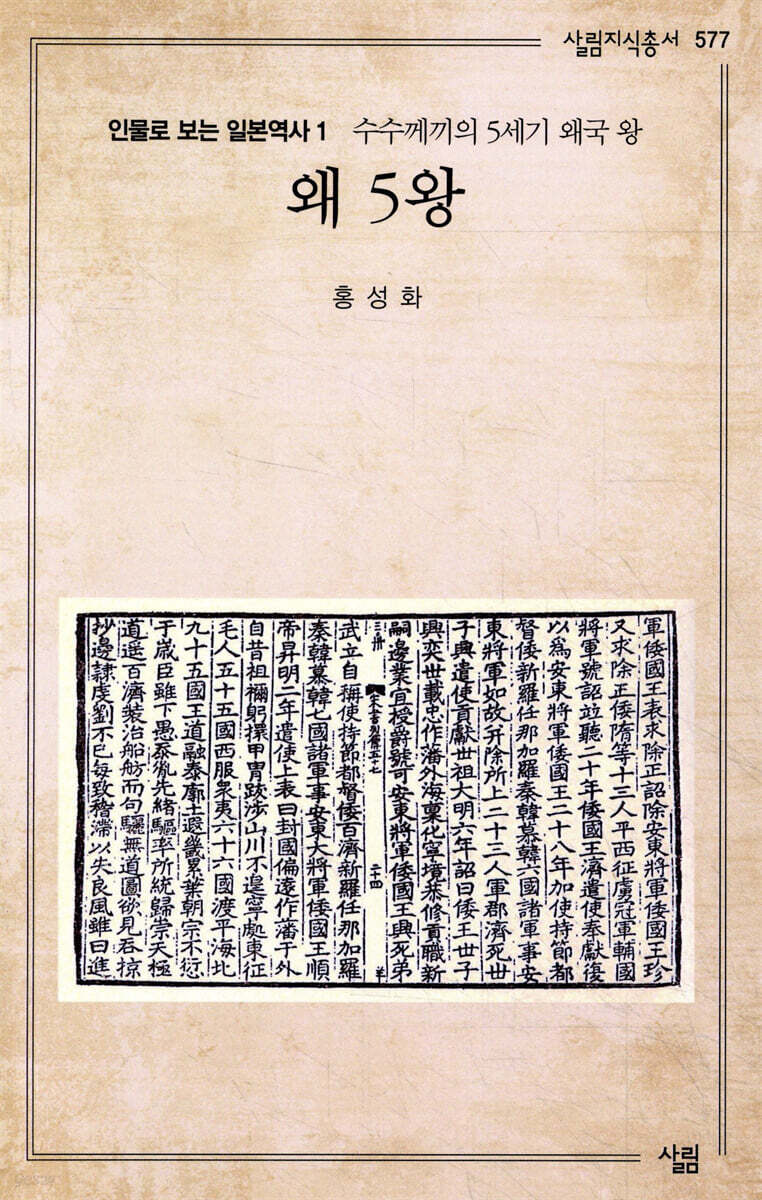 살림지식총서 577
인물로 보는 일본역사 1 수수께끼의 5세기 왜국 왕
왜 5왕
홍성화
軍倭國王表求除正詔除安東將軍倭國王珍
又求除正倭隋等十三人平西征虜冠軍輔國
將軍號詔並聽二十年倭國王濟遣使奉獻復
以爲安東將軍倭國王二十八年加使持節都
督倭新羅任那加羅秦韓慕韓六國諸軍事安
東將軍如故并除所上二十三人軍郡濟死世
子興遣使貢獻世祖大明六年詔曰倭王世子
興奕世載忠作藩外海稟化寧境恭修貢職新
嗣邊業宜授爵號可安東將軍倭國王興死弟
二十四
武立自稱使持節都督倭百濟新羅任那加羅
秦韓慕韓七國諸軍事安東大將軍倭國王順
帝昇明二年遣使上表曰封國偏遠作藩于外
自昔祖禰躬擐甲冑跋涉山川不遑寧處東征
毛人五十五國西服衆夷六十六國渡平海北
九十五國王道融泰廓土遐畿累葉朝宗不愆
于歲臣雖下愚忝胤先緒驅率所統歸崇天極
道遥百濟裝治船舫而句驪無道圖欲見吞掠
抄邊隷虔劉不已每致稽滯以失良風雖曰進
살림